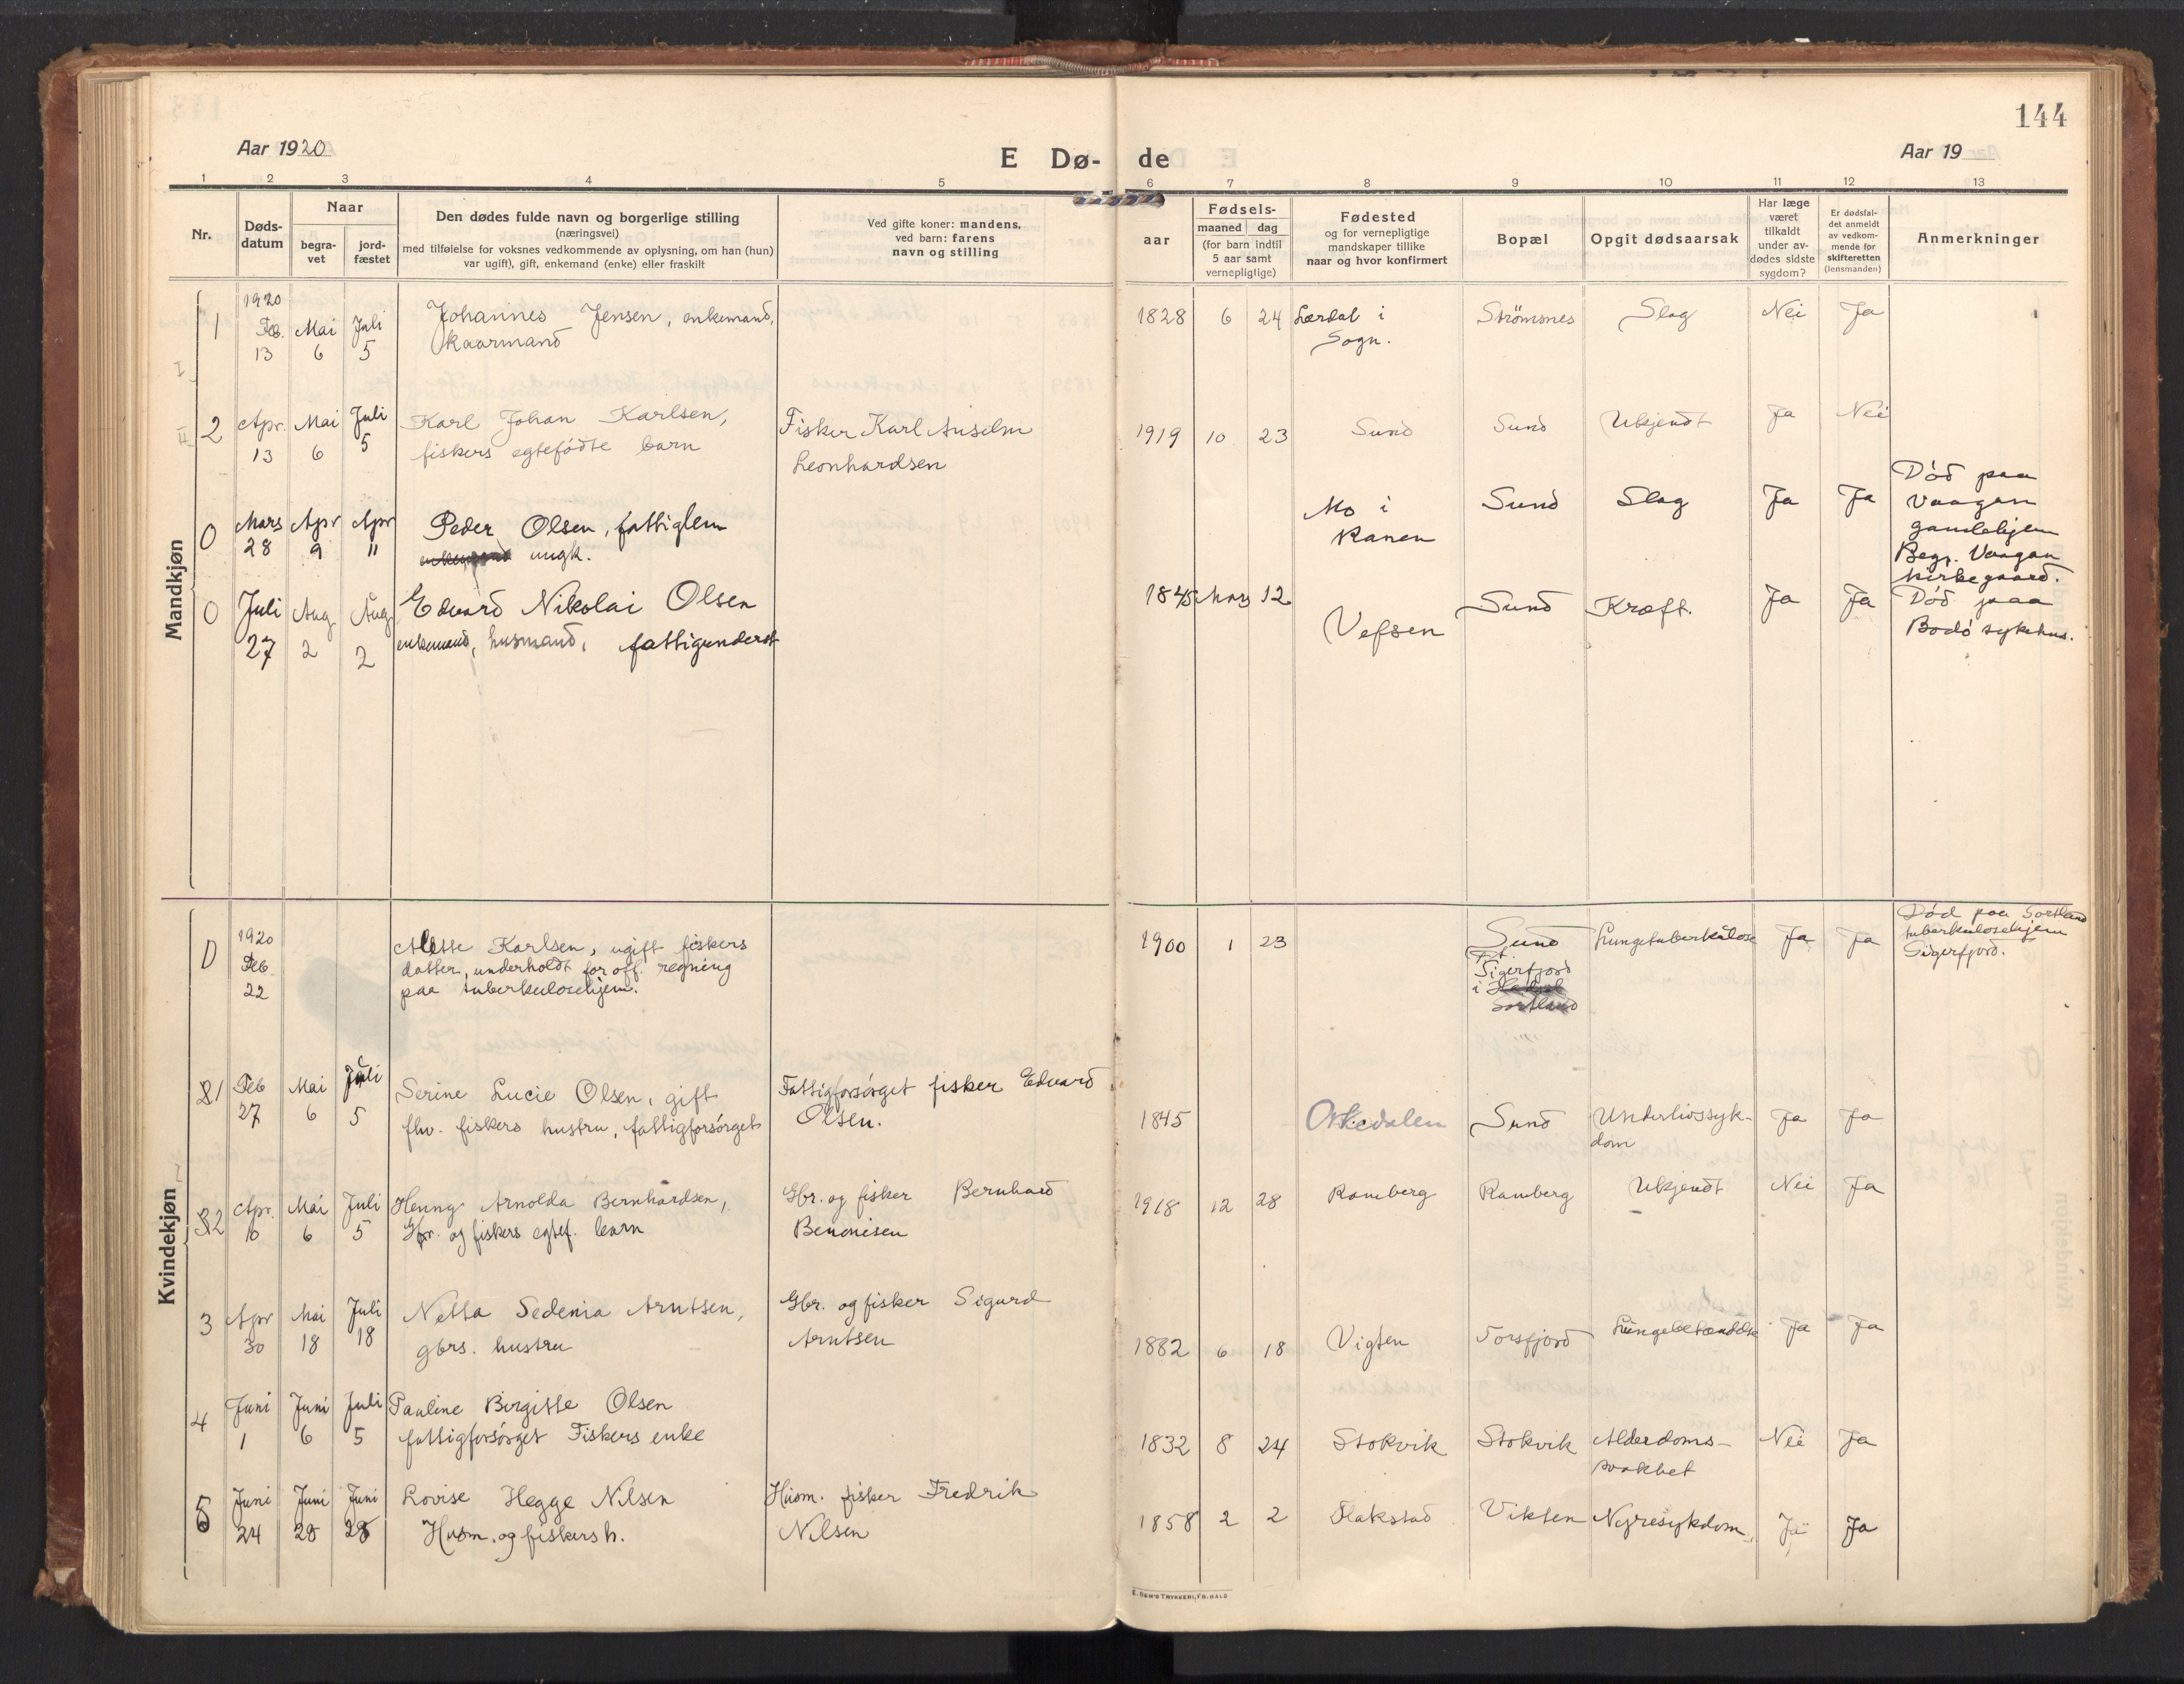 144
Aar 1920
E Dø- de
Aar 19
1 2 3 4 5 6 7 8 9 10 11 12 13
Nr.
Døds-
datum
Naar
begra-
vet
jord-
fæstet
Den dødes fulde navn og borgerlige stilling
(næringsvei)
med tilføielse for voksnes vedkommende av oplysning, om han (hun)
var ugift), gift, enkemand (enke) eller fraskilt
Ved gifte koner: mandens,
ved barn: farens
navn og stilling
Fødsels-
aar
maaned dag
(for barn indtil
5 aar samt
vernepligtige)
Fødested
og for vernepligtige
mandskaper tillike
naar og hvor konfirmert
Bopæl
Opgit dødsaarsak
Har læge
været
tilkaldt
under av-
dødes sidste
sygdom?
Er dødsfal-
det anmeldt
av vedkom-
mende for
skifteretten
(lensmanden)
Anmerkninger
Mandkjøn
1 1920 Feb. 13 Mai 6 Juli 5
Johannes Jensen, enkemand,
kaarmand
1828 6 24 Lærdal i
Sogn.
Strömsnes Slag Nei Ja
2 Apr. 13 Mai 6 Juli 5
Karl Johan Karlsen,
fiskers egtefødte barn
Fisker Karl Anselm
Leonhardsen
1919 10 23 Sund Sund Ukjendt Ja Nei
0 Mars 28 Apr 9 Apr 11
Peder Olsen, fattiglem
enkemand ungk.
Mo i
Ranen
Sund Slag Ja Ja
Död paa
Vaagan
gamlehjem
Begr. Vaagan
kirkegaard.
0 Juli 27 Aug 2 Aug 2
Edvard Nikolai Olsen
enkemand, husmand, fattigunderst
1845 Mars 12 Vefsen Sund Kræft. Ja Ja
Död paa
Bodö sykehus.
Kvindekjøn
0 1920 Feb 22
Alette Karlsen, ugift fiskers
datter, underholdt for off. regning
paa tuberkulosehjem.
1900 1 23
Sund
Sigerfjord
i Hadsel
Sortland
Lungetuberkulose Ja Ja
Död paa Sortland
tuberkulosehjem
Sigerfjord.
1 Feb 27 Mai 6 Juli 5
Serine Lucie Olsen, gift
fhv. fiskers hustru, fattigforsörget
Fattigforsörget fisker Edvard
Olsen.
1845 Orkedalen Sund Underlivssyk-
dom
Ja Ja
2 Apr. 16 Mai 6 Juli 5
Henny Arnolda Bernhardsen,
Gbr. og fiskers egtef. barn
Gbr. og fisker Bernhard
Benonisen
1918 12 28 Ramberg Ramberg Ukjendt Nei Ja
3 Apr 30 Mai 18 Juli 18
Netta Sedenia Arntsen,
gbrs. hustru
Gbr. og fisker Sigurd
Arntsen
1882 6 18 Vigten Torsfjord Lungebetændelse Ja Ja
4 Juni 1 Juni 6 Juli 5
Pauline Birgitte Olsen
fattigforsörget Fiskers enke
1832 8 24 Stokvik Stokvik Alderdoms-
svakhet
Nei Ja
5 Juni 24 Juni 28 Juni 28
Lovise Hegge Nilsen
Husm. og fiskers h.
Husm. fisker Fredrik
Nilsen
1858 2 2 Flakstad Vikten Nyresykdom. Ja Ja